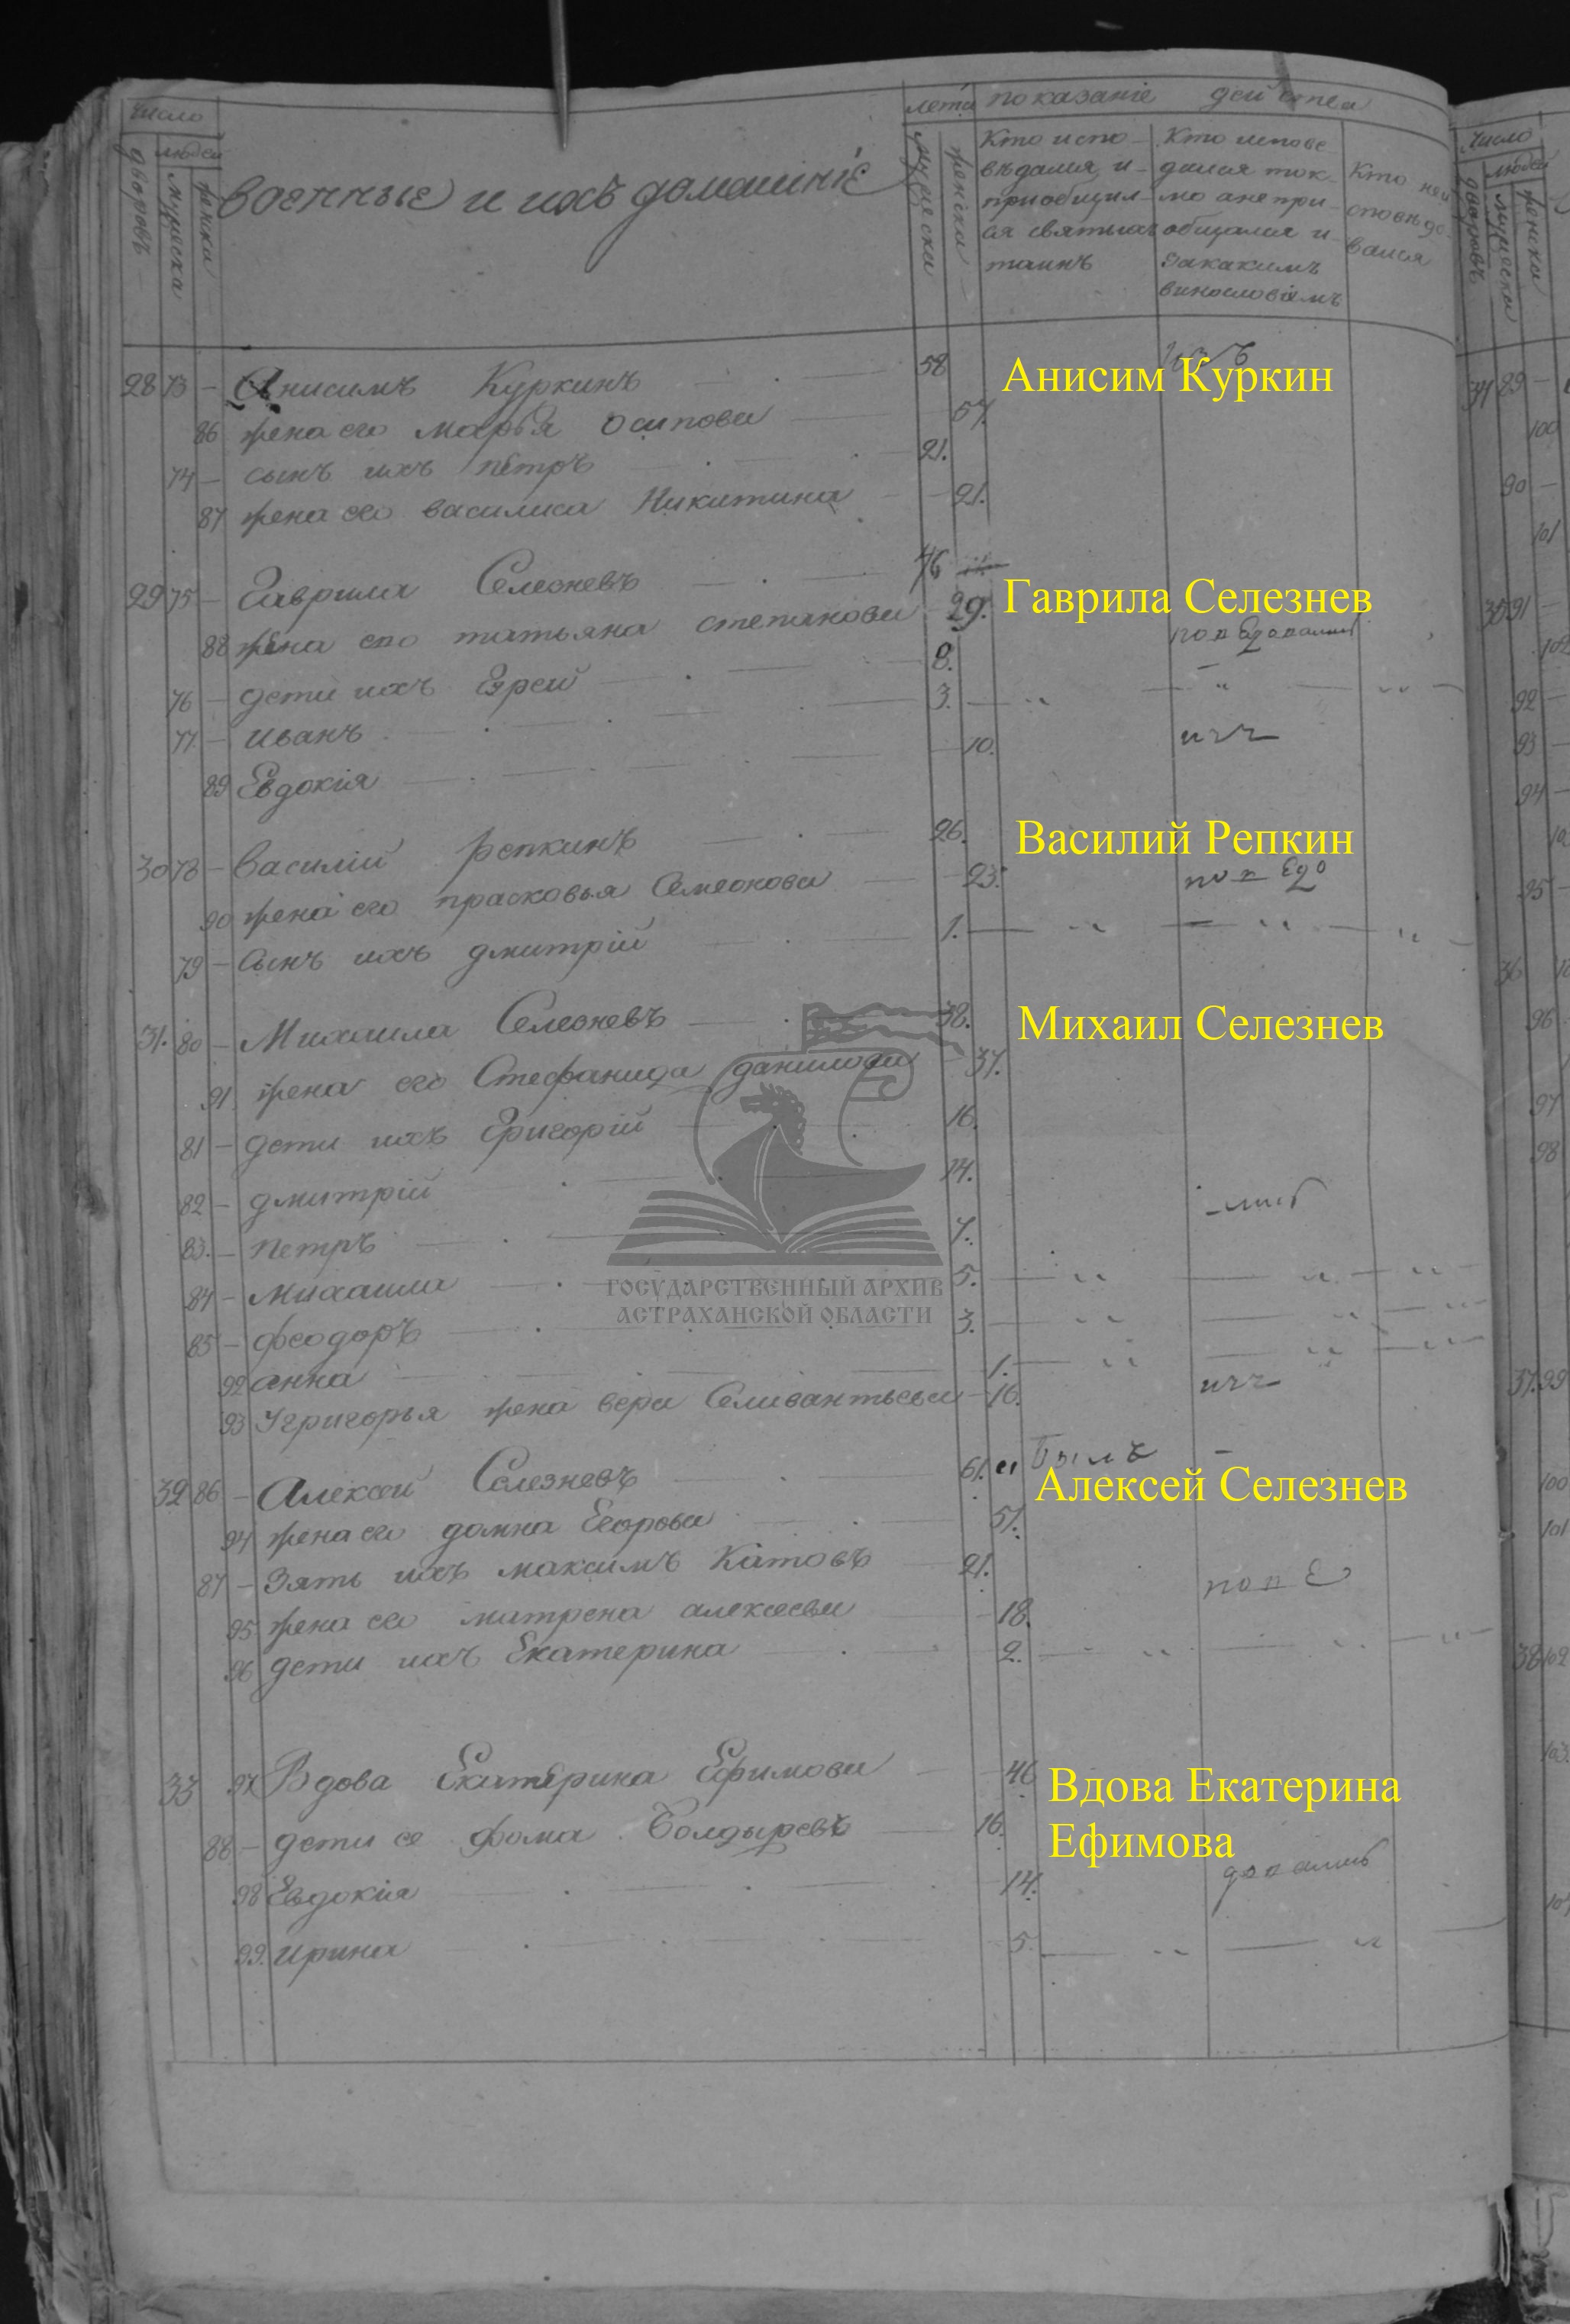 число
дворовъ
людей
мужеска
женска
военные и ихъ домашніе
лета
мужеска
женска
показаніе действа
Кто испо-
ведался и
приобщил-
ся святыхъ
таинъ
Кто испове
дался ток-
мо а не при-
общался и
за какимъ
винословіемъ
Кто неи
споведо-
вался
28 73 - Анисимъ Куркинъ 58
Анисим Куркин
86 жена его марья осипова 57.
74 - сынъ ихъ петръ 21.
87 жена его василиса Никитина 21.
29 75 - Гаврила Селезневъ 46
Гаврила Селезнев
88 жена его татьяна степанова 29.
76 - дети ихъ 8.
77 - иванъ 3.
89 Евдокія 10.
30 78 - василій репкинъ 26.
Василий Репкин
90 жена его прасковья Семеонова 23.
79 - сынъ ихъ дмитрій 1.
31. 80 - Михаила Селезневъ 38.
Михаил Селезнев
91 жена его Стефанида данилова 37.
81 - дети ихъ Григорій 16.
82 - дмитрій 14.
83. - петръ 7.
84 - михаила 5.
85 - феодоръ 3.
92 анна 1.
93 У григорья жена вера Селивантьева 16.
ГОСУДАРСТВЕННЫЙ АРХИВ
АСТРАХАНСКОЙ ОБЛАСТИ
32 86 - Алексей Селезневъ 61.
Алексей Селезнев
94 жена его домна Егорова 51.
87 - Зять ихъ максимъ Катовъ 21.
95 жена его матрена алексеева 18.
96 дети ихъ Екатерина 2.
33 97 Вдова Екатерина Ефимова 46
Вдова Екатерина
Ефимова
88 - дети ее фома Болдыревъ 16.
98 Евдокіа 14.
99. ирина 5.